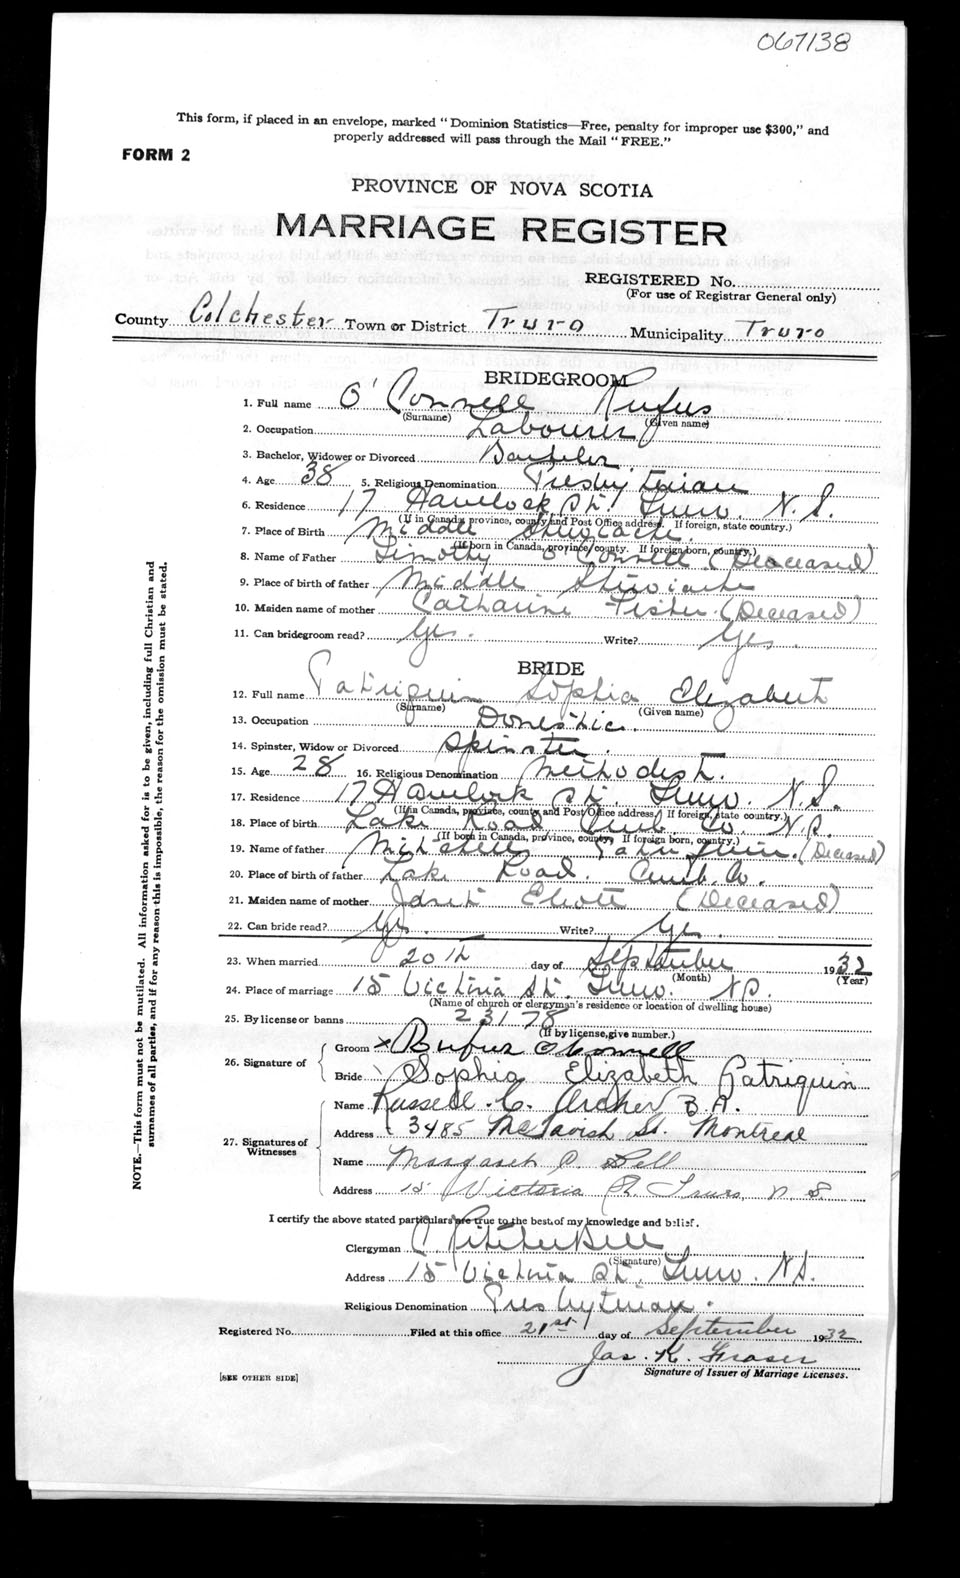 067138
This form, if placed in an envelope, marked "Dominion Statistics—Free, penalty for improper use $300," and
properly addressed will pass through the Mail "FREE."
FORM 2
PROVINCE OF NOVA SCOTIA
MARRIAGE REGISTER
REGISTERED No.
(For use of Registrar General only)
County Colchester Town or District Truro Municipality Truro
BRIDEGROOM
1. Full name O'Connell Rufus
(Surname) (Given name)
2. Occupation Labourer
3. Bachelor, Widower or Divorced Bachelor.
4. Age 38 5. Religious Denomination Presbyterian
6. Residence 17 Havelock St. Truro. N.S.
(If in Canada, province, county and Post Office address. If foreign, state country.)
7. Place of Birth Middle Stewiacke.
(If born in Canada, province, county. If foreign born, country.)
8. Name of Father Timothy O'Connell (Deceased)
9. Place of birth of father Middle Stewiacke
10. Maiden name of mother Catharine Fisher. (Deceased)
11. Can bridegroom read? Yes. Write? Yes.
BRIDE
12. Full name Patriquin Sophia Elizabeth
(Surname) (Given name)
13. Occupation Domestic.
14. Spinster, Widow or Divorced Spinster.
15. Age 28 16. Religious Denomination Methodist.
17. Residence 17 Havelock St. Truro. N.S.
(If in Canada, province, county and Post Office address. If foreign, state country.)
18. Place of birth Lake Road Cumb Co. N.S.
(If born in Canada, province, country. If foreign born, country.)
19. Name of father Mitchell Patriquin. (Deceased)
20. Place of birth of father Lake Road. Cumb. Co.
21. Maiden name of mother (Deceased)
22. Can bride read? Yes. Write? Yes.
23. When married 20th day of September 1932
(Month) (Year)
24. Place of marriage 15 Victoria St. Truro. N.S.
(Name of church or clergyman's residence or location of dwelling house)
25. By license or banns 23178
(If by license, give number.)
26. Signature of
Groom x Rufus O'Connell
Bride Sophia Elizabeth Patriquin
27. Signatures of Witnesses
Name Russell C. Archer B.A.
Address 3485 McTavish St. Montreal
Name Margaret Bell
Address 15 Victoria St. Truro, N.S.
I certify the above stated particulars are true to the best of my knowledge and belief.
Clergyman Bell
(Signature)
Address 15 Victoria St. Truro. N.S.
Religious Denomination Presbyterian.
Registered No. Filed at this office 21st day of September 1932
Jas. K. Fraser
Signature of Issuer of Marriage Licenses.
[SEE OTHER SIDE]
NOTE.—This form must not be mutilated. All information asked for is to be given, including full Christian and
surnames of all parties, and if for any reason this is impossible, the reason for the omission must be stated.